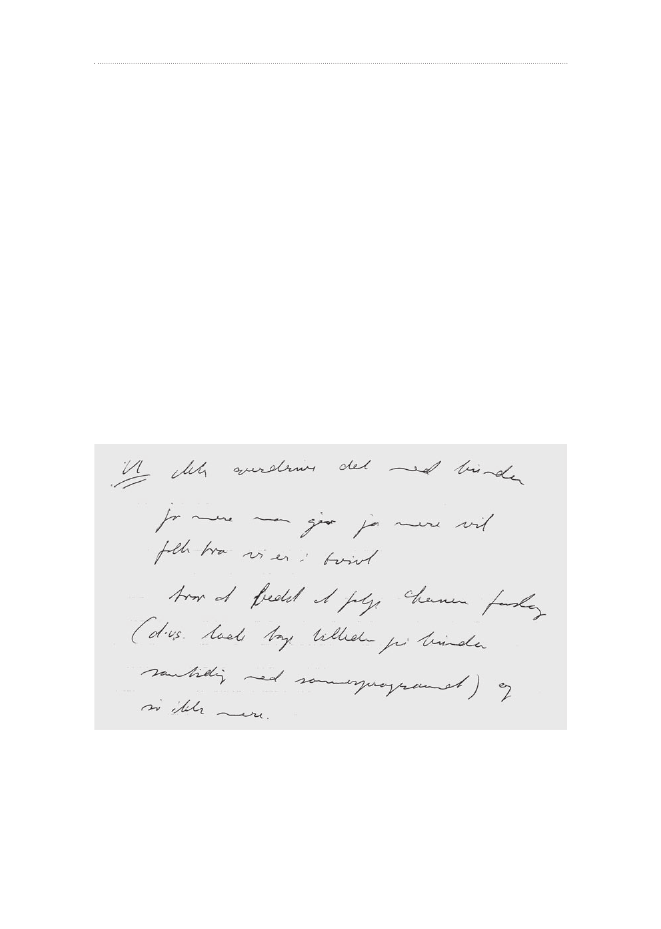 ikke overdrive det med hinden
jo mere man gør jo mere vil
folk tro vi er i tvivl
tror at bedst at følge forslag
(d.v.s. lade tage billeder på hinden
samtidig med sommerprogrammet) og
så ikke mere.